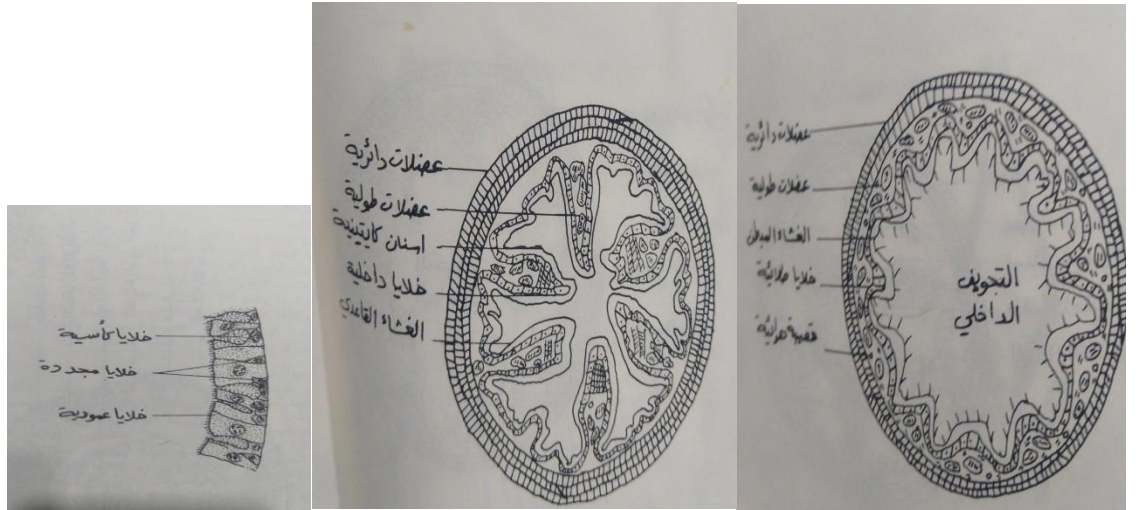 خلايا كأسية
خلايا مجددة
خلايا عمودية
عضلات دائرية
عضلات طولية
اسنان كايتينية
خلايا داخلية
الغشاء القاعدي
عضلات دائرية
عضلات طولية
الغشاء المبطن
خلايا طلائية
قصبة هوائية
التجويف
الداخلي